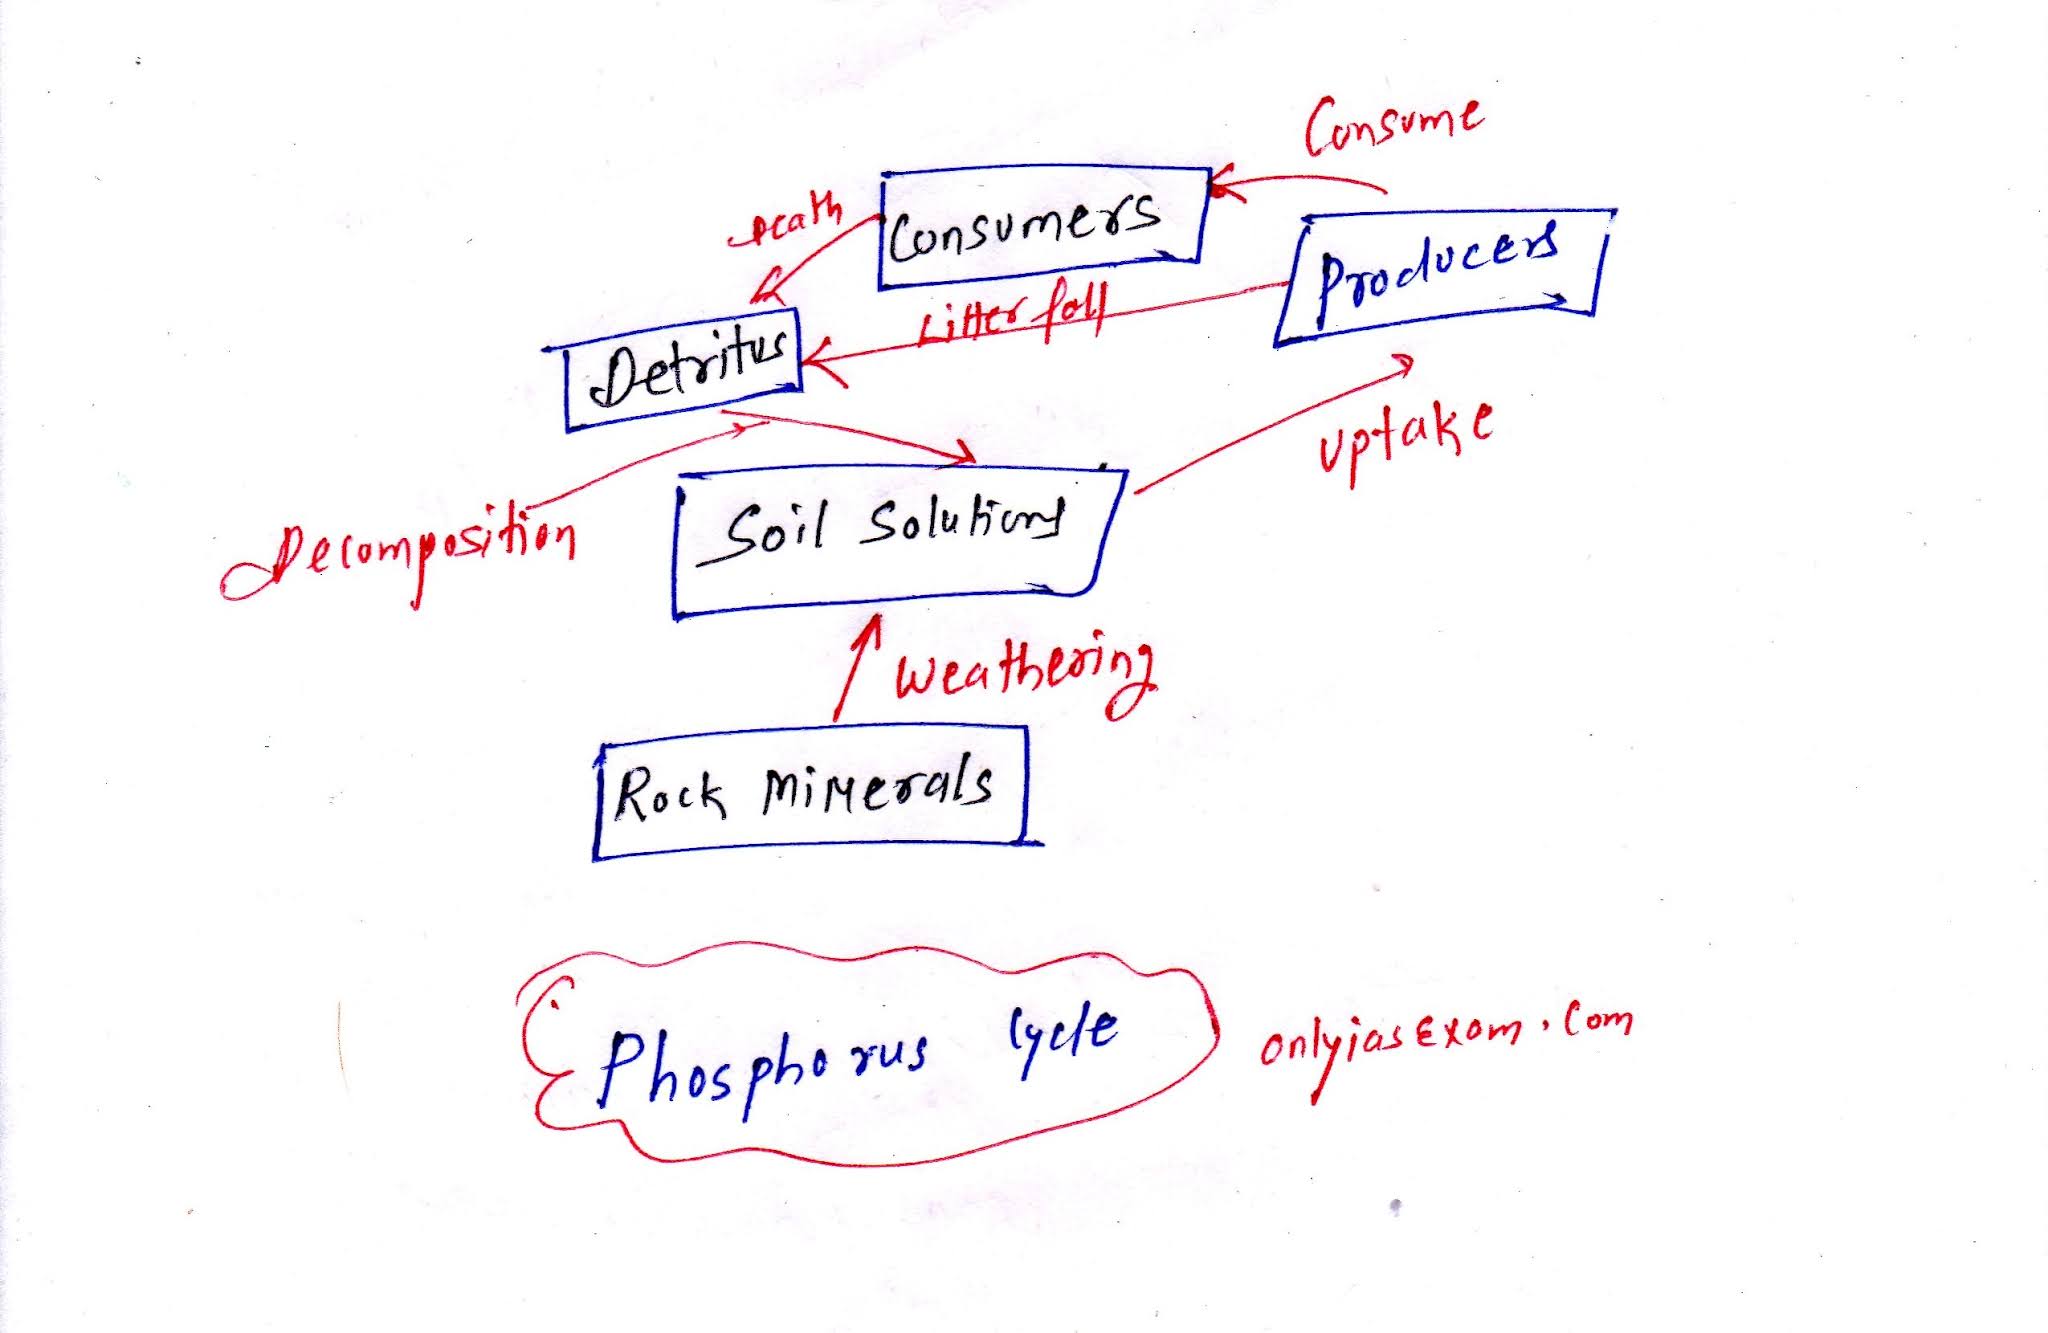 Consume
Consumers
Death
Producers
Litter fall
Detritus
uptake
Soil Solutions
Decomposition
Weathering
Rock Minerals
Phosphorus Cycle
onlyiasExam.Com